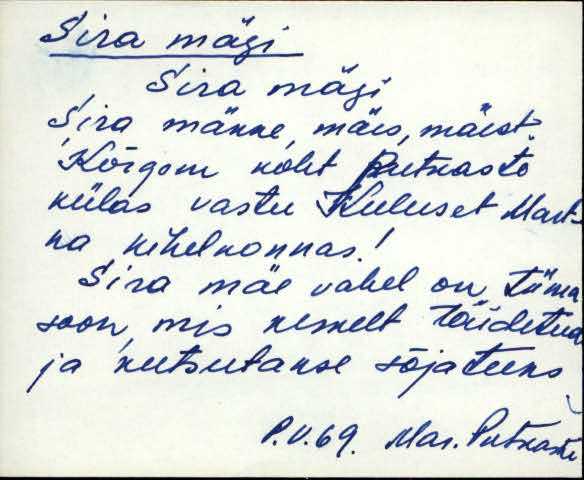 Sira mägi
Sira mägi
Sira männe, mäis, mäist.
Kõigom koht Putkaste
külas vastu Kuluset Mart-
na kihelkonnas!
Sira mäe vahel on tüma
soon, mis kemelt täidetud
ja kutsutakse sõjateeks
P.V.69. Mar. Putkaste